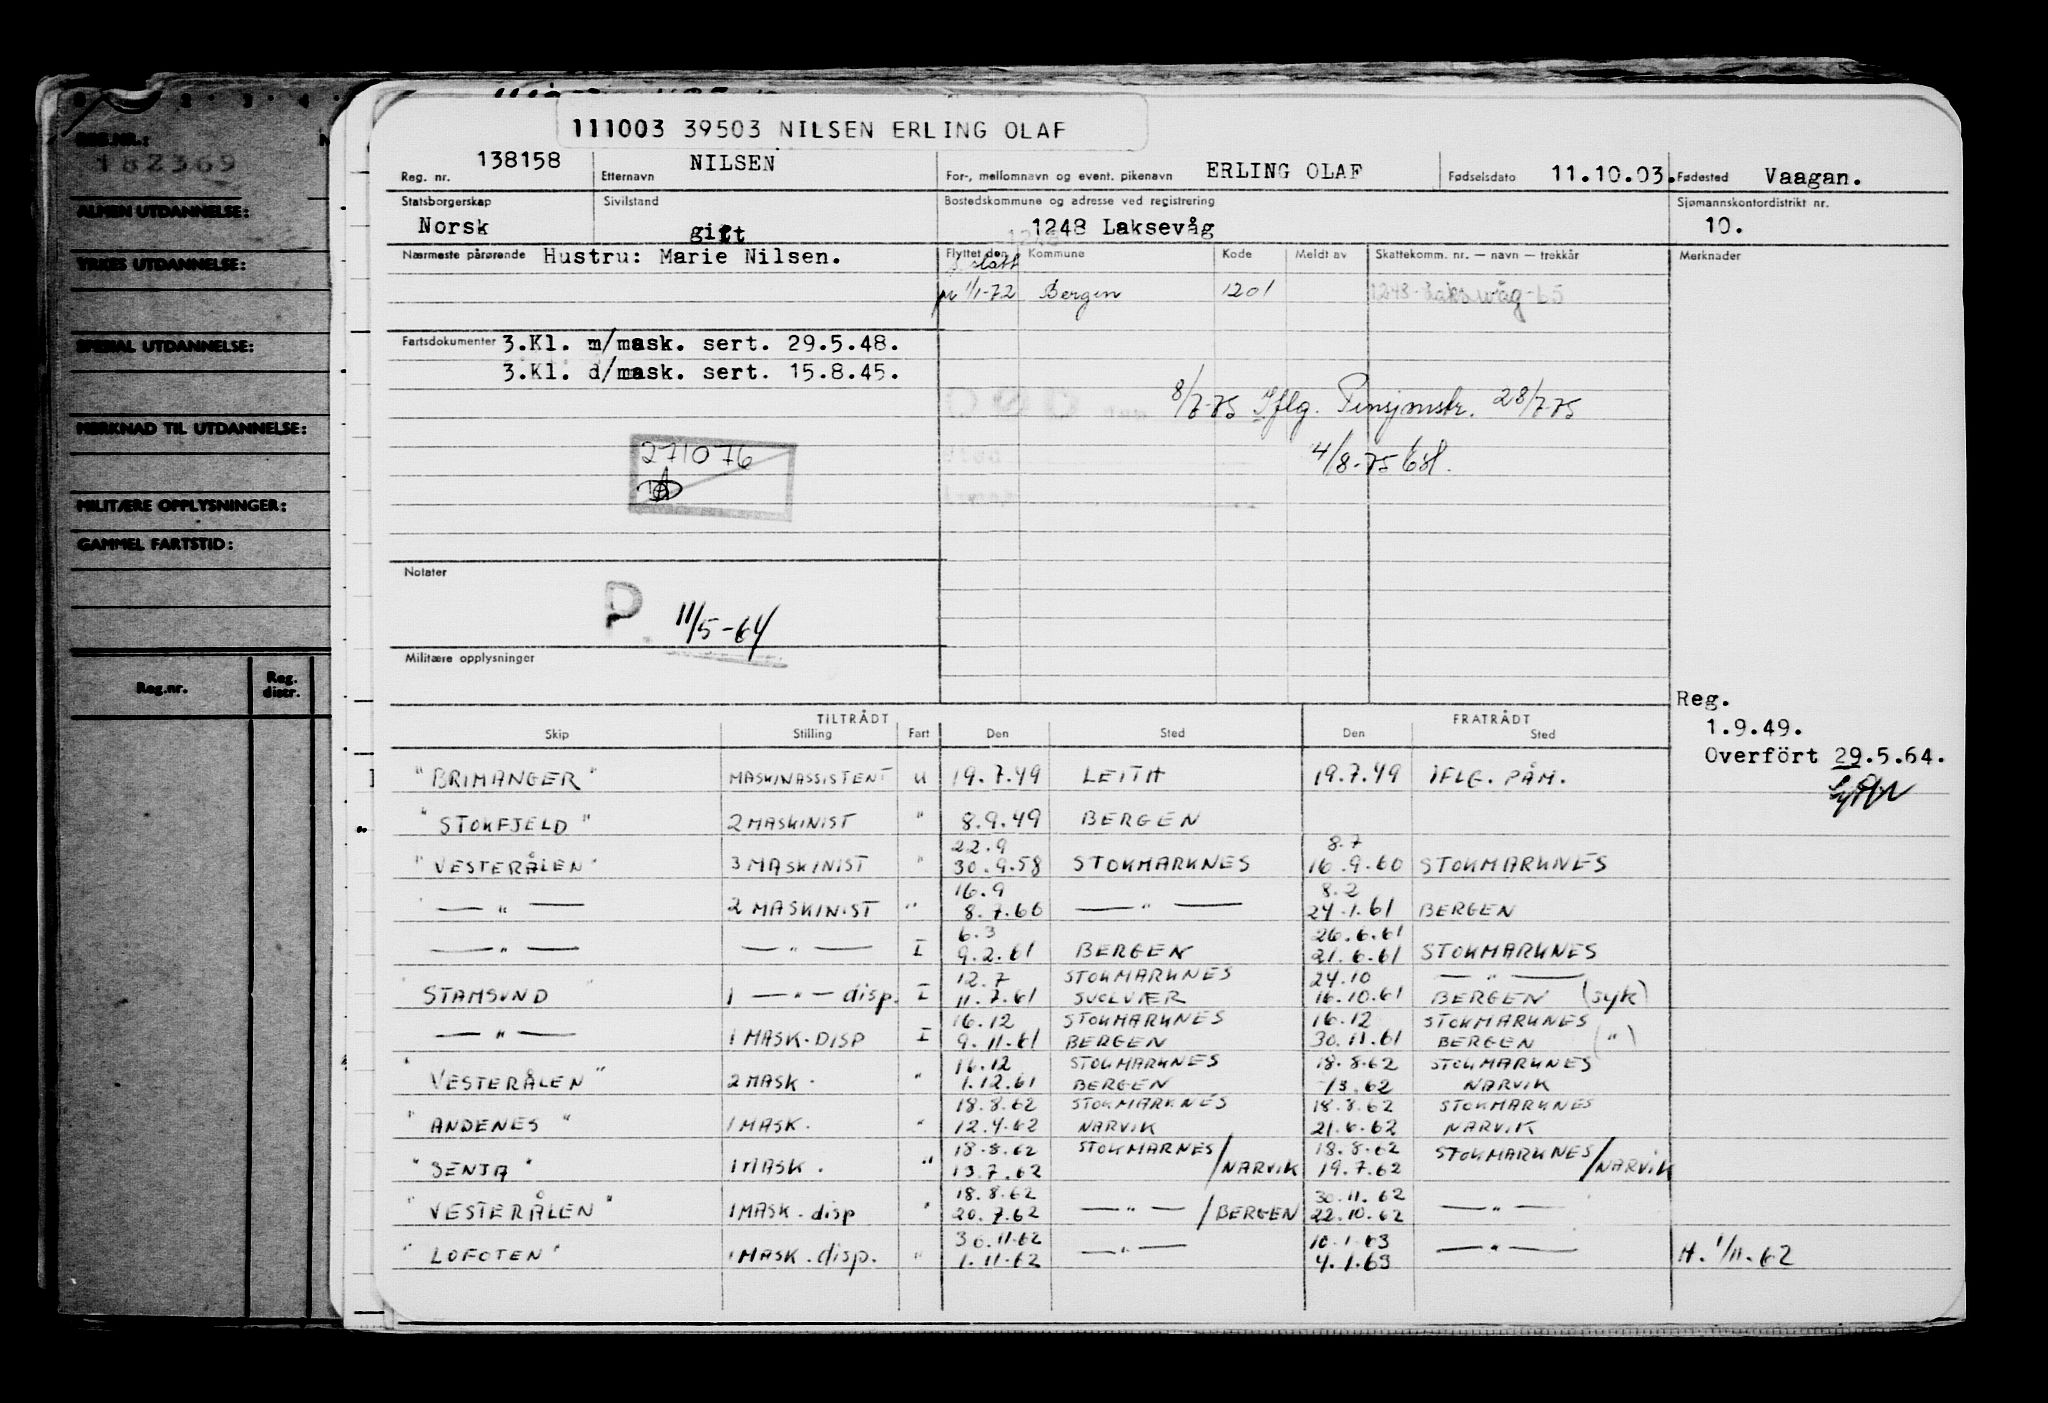 182369
ALMEN UTDANNELSE:
YRKES UTDANNELSE:
SPESIAL UTDANNELSE:
MERKNAD TIL UTDANNELSE:
MILITÆRE OPPLYSNINGER:
GAMMEL FARTSTID:
Reg.nr.
Reg. distr.
111003 39503 NILSEN ERLING OLAF
Reg. nr. 138158 Etternavn NILSEN For-, mellomnavn og event. pikenavn ERLING OLAF Fødselsdato 11.10.03. Fødested Vaagan.
Statsborgerskap Sivilstand Bostedskommune og adresse ved registrering Sjømannskontordistrikt nr.
Norsk gift 1248 Laksevåg 10.
Nærmeste pårørende Hustru: Marie Nilsen. Flyttet den Kommune Kode Meldt av Skattekomm. nr. — navn — trekkår Merknader
1/1-72 Bergen 1201 1248-Laksevåg-65
Fartsdokumenter 3.Kl. m/mask. sert. 29.5.48.
3.Kl. d/mask. sert. 15.8.45.
8/7-75 Iflg. Pensjonstr. 28/7-75
271076
4/8-75
Notater
P. 11/5-64
Militære opplysninger
Reg.
1.9.49.
Overført 29.5.64.
TILTRÅDT FRATRÅDT
Skip Stilling Fart Den Sted Den Sted
"BRIMANGER" MASKINASSISTENT U 19.7.49 LEITH 19.7.49 IFLG. PÅM.
"STOKFJELD" 2 MASKINIST " 8.9.49 BERGEN
22.9 8.7
"VESTERÅLEN" 3 MASKINIST " 30.9.58 STOKMARKNES 16.9.60 STOKMARKNES
16.9 8.2
— " — 2 MASKINIST " 8.7.60 — " — 24.1.61 BERGEN
6.3 26.6.61
— " — — " — I 9.2.61 BERGEN 21.6.61 STOKMARKNES
12.7 STOKMARKNES 24.10 — " —
STAMSUND " 1 — " — disp. I 11.7.61 SVOLVÆR 16.10.61 BERGEN (syk)
16.12 STOKMARKNES 16.12 STOKMARKNES
— " — 1 MASK. DISP I 9.11.61 BERGEN 30.11.61 BERGEN (")
16.12 STOKMARKNES 18.8.62 STOKMARKNES
"VESTERÅLEN" 2 MASK. " 1.12.61 BERGEN 13.62 NARVIK
18.8.62 STOKMARKNES 18.8.62 STOKMARKNES
"ANDENES" 1 MASK. " 12.4.62 NARVIK 21.6.62 NARVIK
18.8.62 STOKMARNES 18.8.62 STOKMARKNES
"SENJA" 1 MASK. " 13.7.62 /NARVIK 19.7.62 /NARVIK
18.8.62 30.11.62
"VESTERÅLEN" 1 MASK. disp " 20.7.62 — " — /BERGEN 22.10.62 — " —
30.11.62 10.1.63
"LOFOTEN" 1 MASK. disp. " 1.11.62 — " — 4.1.63 — " — H. 1/11.62